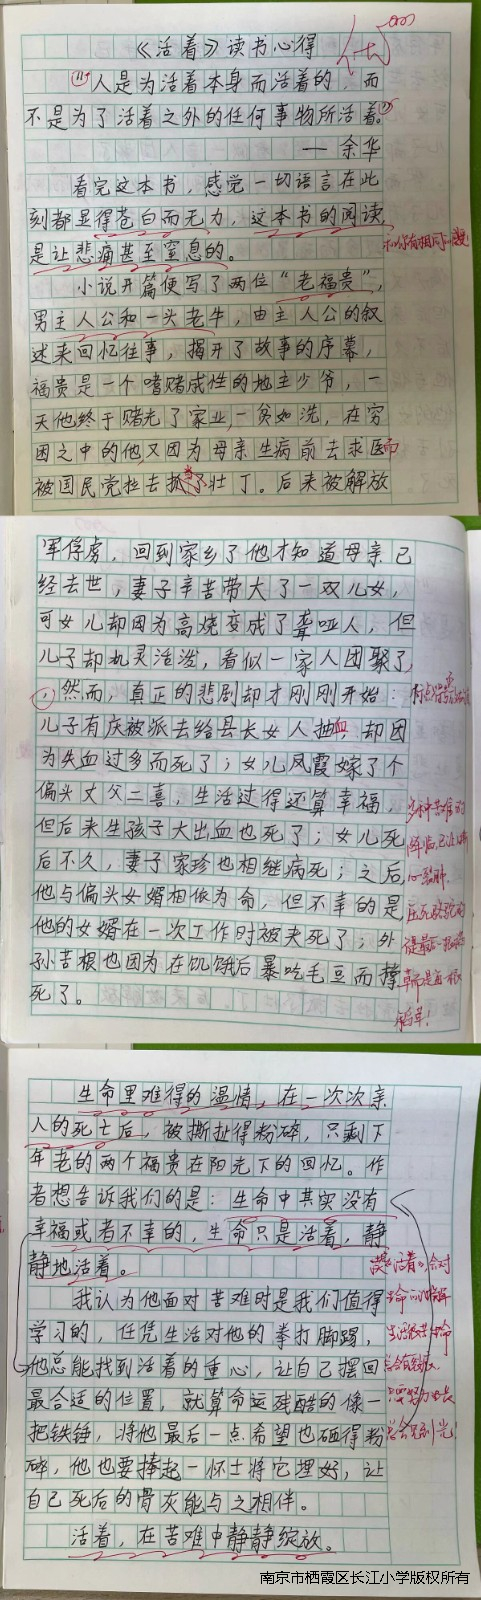 《活着》读书心得
"人是为活着本身而活着的，而
不是为了活着之外的任何事物所活着。"
—余华
看完这本书，感觉一切语言在此
刻都显得苍白而无力，这本书的阅读
是让悲痛甚至窒息的。
小说开篇便写了两位“老福贵”，
男主人公和一头老牛，由主人公的叙
述来回忆往事，揭开了故事的序幕，
福贵是一个嗜赌成性的地主少爷，一
天他终于赌光了家业，一贫如洗，在穷
困之中的他，又因为母亲生病前去求医而
被国民党拉去抓了壮丁。后来被解放
军俘虏，回到家乡了他才知道母亲已
经去世，妻子辛苦带大了一双儿女，
可女儿却因为高烧变成了聋哑人，但
儿子却机灵活泼，看似一家人团聚了，
然而，真正的悲剧却才刚刚开始：
儿子有庆被派去给县长女人抽血，却因
为失血过多而死了；女儿凤霞嫁了个
偏头丈父二喜，生活过得还算幸福，
但后来生孩子大出血也死了；女儿死
后不久，妻子家珍也相继病死；之后，
他与偏头女婿相依为命，但不幸的是
他的女婿在一次工作时被夹死了；外
孙苦根也因为在饥饿后暴吃毛豆而撑
死了。
生命里难得的温情，在一次次亲
人的死亡后，被撕扯得粉碎，只剩下
年老的两个福贵在阳光下的回忆。作
者想告诉我们的是：生命中其实没有
幸福或者不幸的，生命只是活着，静
静地活着。
我认为他面对苦难时是我们值得
学习的，任凭生活对他的拳打脚踢，
他总能找到活着的重心，让自己摆回
最合适的位置，就算命运残酷的像一
把铁锤，将他最后一点希望也砸得粉
碎，他也要捧起一怀土将它埋好，让
自己死后的骨灰能与之相伴。
活着，在苦难中静静绽放。
南京市栖霞区长江小学版权所有